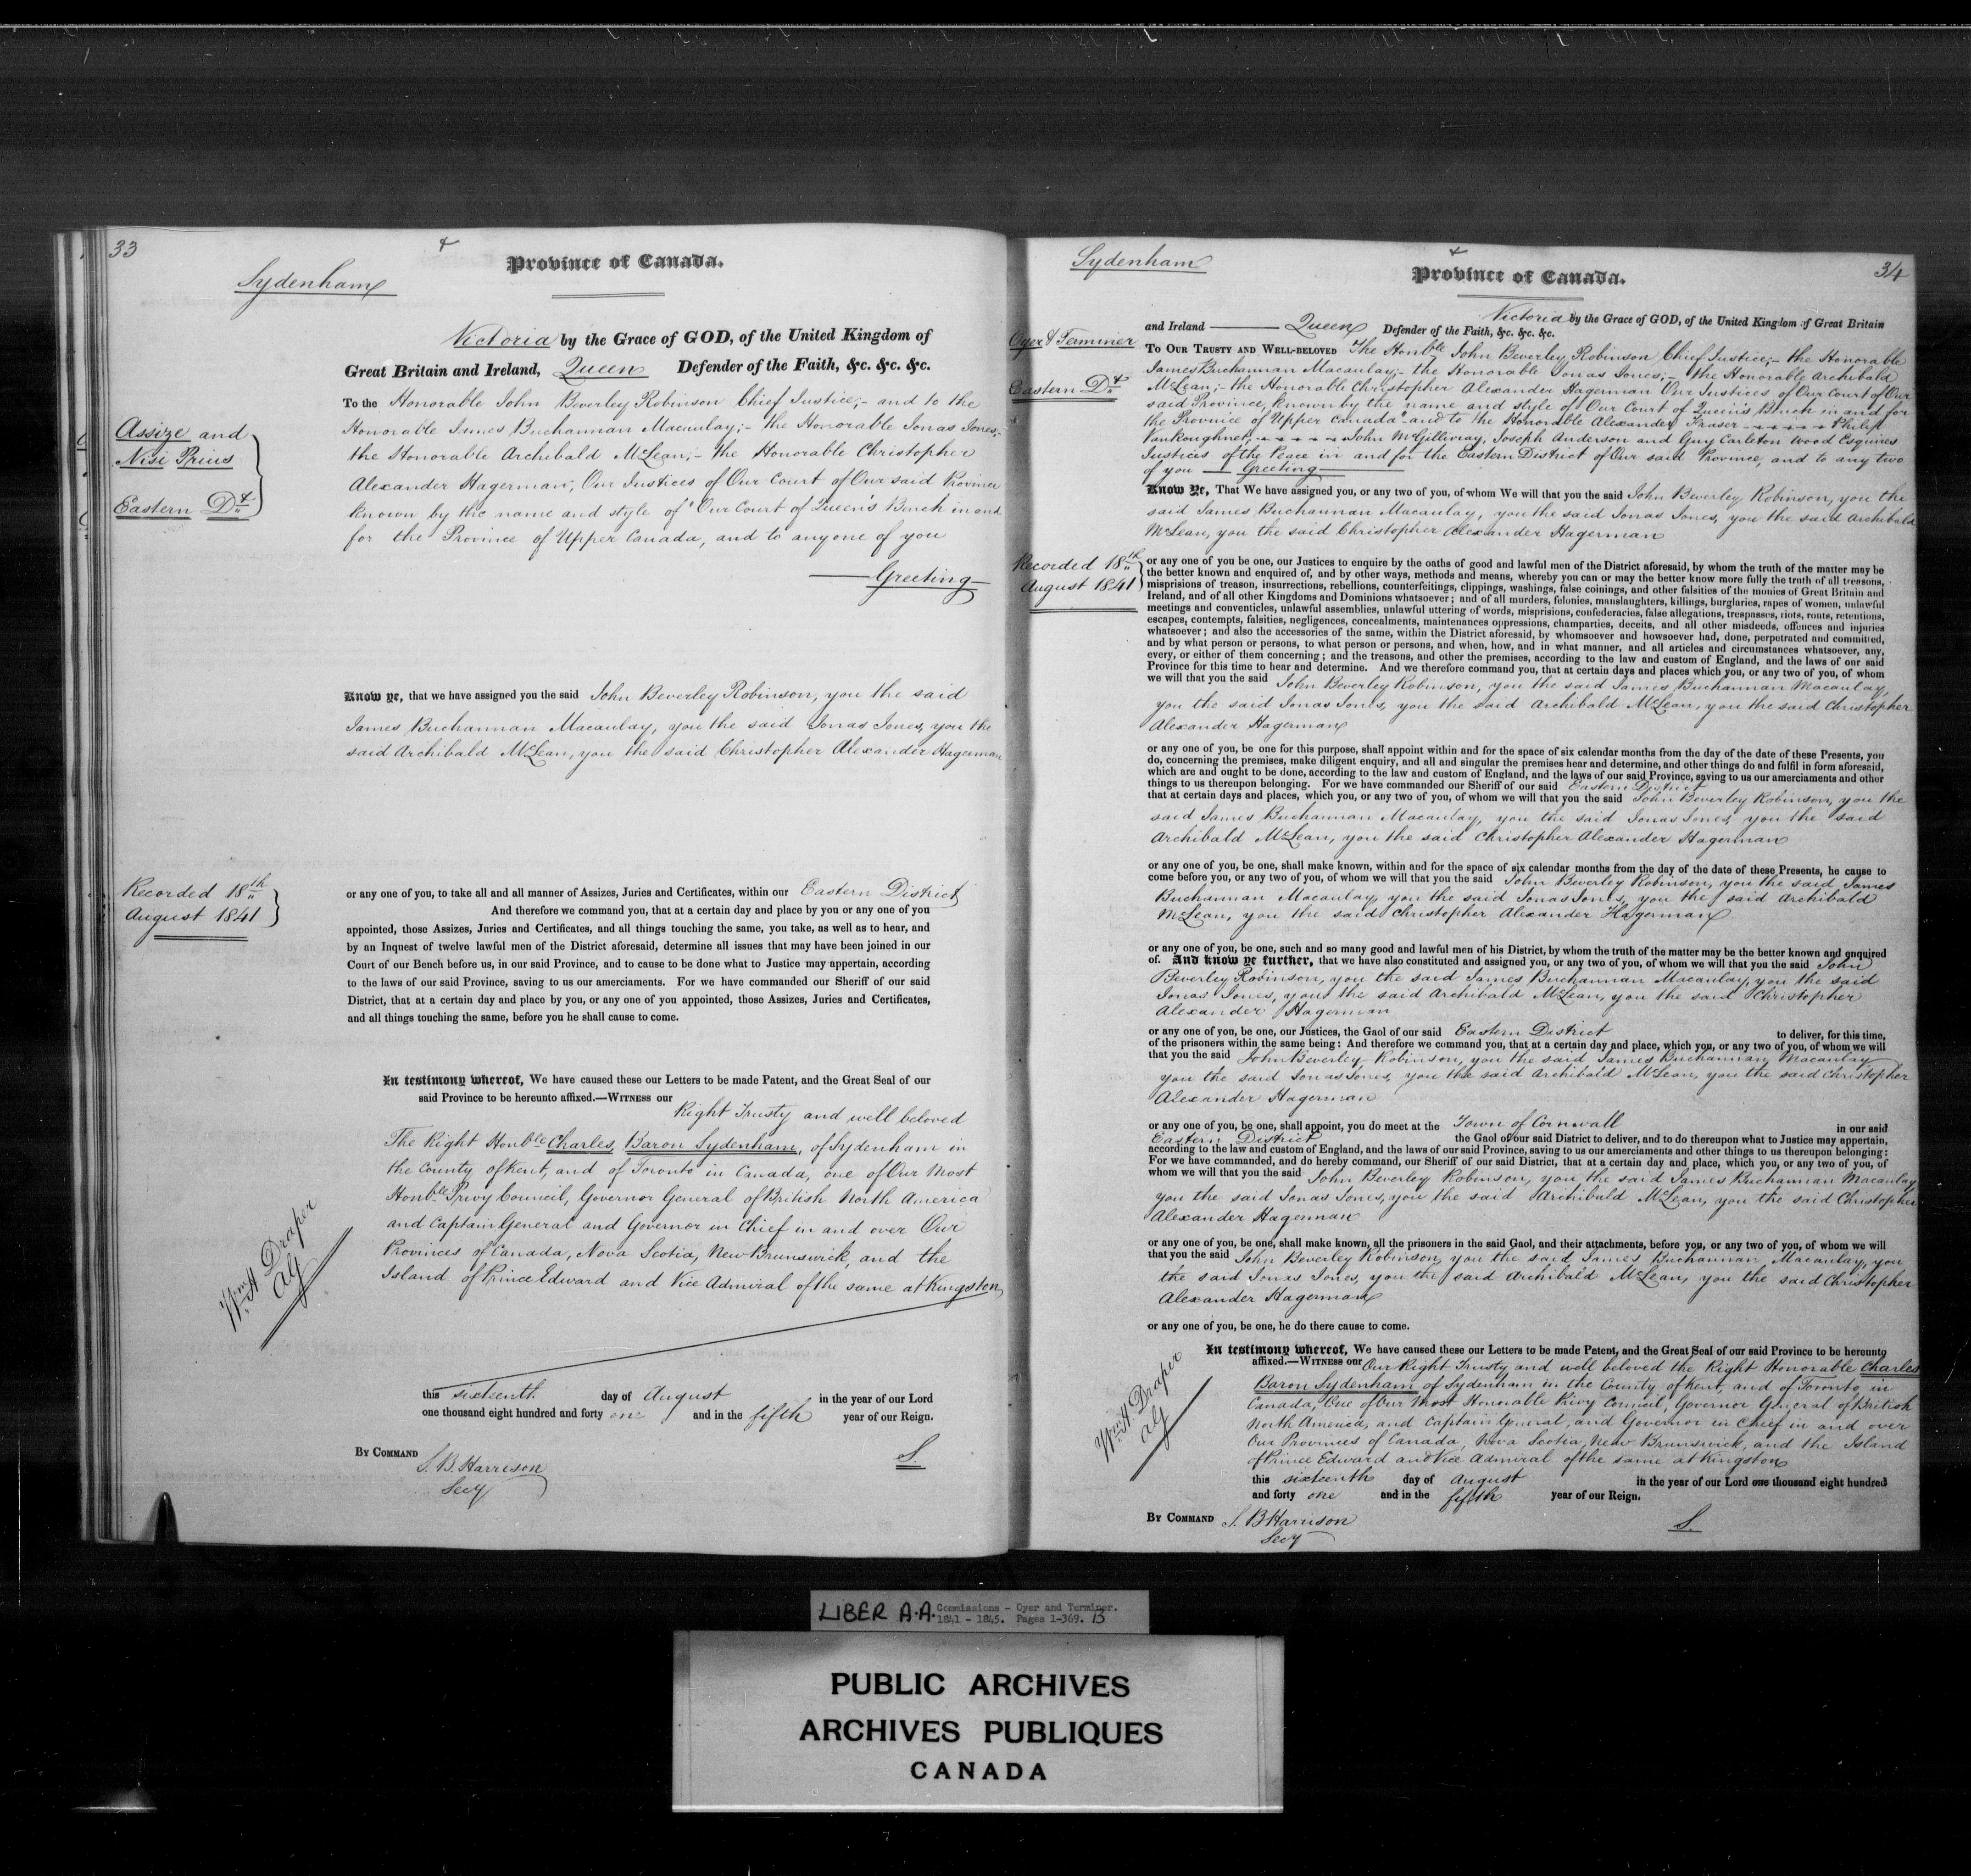 33
Sydenham
Province of Canada.
Victoria by the Grace of GOD, of the United Kingdom of
Great Britain and Ireland, Queen Defender of the Faith, &c. &c. &c.
Assize and
Nisi Prius
Eastern Dt
To the Honorable John Beverley Robinson Chief Justice;- and to the
Honorable James Buchannan Macaulay;- the Honorable Jonas Jones;-
the Honorable Archibald McLean;- the Honorable Christopher
Alexander Hagerman; Our Justices of Our Court of Our said Province
known by the name and style of "Our Court of Queen's Bench in and
for the Province of Upper Canada, and to anyone of you
Greeting
Know ye, that we have assigned you the said John Beverley Robinson, you the said
James Buchannan Macaulay, you the said Jonas Jones, you the
said Archibald McLean, you the said Christopher Alexander Hagerman
Recorded 18th
August 1841
or any one of you, to take all and all manner of Assizes, Juries and Certificates, within our Eastern District
And therefore we command you, that at a certain day and place by you or any one of you
appointed, those Assizes, Juries and Certificates, and all things touching the same, you take, as well as to hear, and
by an Inquest of twelve lawful men of the District aforesaid, determine all issues that may have been joined in our
Court of our Bench before us, in our said Province, and to cause to be done what to Justice may appertain, according
to the laws of our said Province, saving to us our amerciaments. For we have commanded our Sheriff of our said
District, that at a certain day and place by you, or any one of you appointed, those Assizes, Juries and Certificates,
and all things touching the same, before you he shall cause to come.
In testimony whereof, We have caused these our Letters to be made Patent, and the Great Seal of our
said Province to be hereunto affixed.—WITNESS our
Right Trusty and well beloved
The Right Honble Charles, Baron Sydenham, of Sydenham in
the County of Kent, and of Toronto in Canada, one of Our Most
Honble Privy Council, Governor General of British North America
and Captain General and Governor in Chief in and over Our
Provinces of Canada, Nova Scotia, New Brunswick, and the
Island of Prince Edward and Vice Admiral of the same at Kingston
Wm H Draper
AG
this sixteenth day of August in the year of our Lord
one thousand eight hundred and forty one and in the fifth year of our Reign.
BY COMMAND
S. B. Harrison
Secy
S.
34
Sydenham
Province of Canada.
Victoria by the Grace of GOD, of the United Kingdom of Great Britain
and Ireland Queen Defender of the Faith, &c. &c. &c.
Oyer & Terminer
Eastern Dt
TO OUR TRUSTY AND WELL-BELOVED The Honble John Beverley Robinson Chief Justice;- the Honorable
James Buchannan Macaulay;- the Honorable Jonas Jones;- the Honorable Archibald
McLean;- the Honorable Christopher Alexander Hagerman Our Justices of Our Court of Our
said Province, known by the name and style of "Our Court of Queen's Bench in and for
the Province of Upper Canada" and to the Honorable Alexander Fraser Philip
VanKoughnet, John McGillivray, Joseph Anderson and Guy Carleton Wood Esquires
Justices of the Peace in and for the Eastern District of Our said Province, and to any two
of you Greeting
Know Ye, That We have assigned you, or any two of you, of whom We will that you the said John Beverley Robinson, you the
said James Buchannan Macaulay, you the said Jonas Jones, you the said Archibald
McLean, you the said Christopher Alexander Hagerman
Recorded 18th
August 1841
or any one of you be one, our Justices to enquire by the oaths of good and lawful men of the District aforesaid, by whom the truth of the matter may be
the better known and enquired of, and by other ways, methods and means, whereby you can or may the better know more fully the truth of all treasons,
misprisions of treason, insurrections, rebellions, counterfeitings, clippings, washings, false coinings, and other falsities of the monies of Great Britain and
Ireland, and of all other Kingdoms and Dominions whatsoever; and of all murders, felonies, manslaughters, killings, burglaries, rapes of women, unlawful
meetings and conventicles, unlawful assemblies, unlawful uttering of words, misprisions, confederacies, false allegations, trespasses, riots, routs, retentions,
escapes, contempts, falsities, negligences, concealments, maintenances oppressions, champarties, deceits, and all other misdeeds, offences and injuries
whatsoever; and also the accessories of the same, within the District aforesaid, by whomsoever and howsoever had, done, perpetrated and committed,
and by what person or persons, to what person or persons, and when, how, and in what manner, and all articles and circumstances whatsoever, any,
every, or either of them concerning; and the treasons, and other the premises, according to the law and custom of England, and the laws of our said
Province for this time to hear and determine. And we therefore command you, that at certain days and places which you, or any two of you, of whom
we will that you the said John Beverley Robinson, you the said James Buchannan Macaulay,
you the said Jonas Jones, you the said Archibald McLean, you the said Christopher
Alexander Hagerman
or any one of you, be one for this purpose, shall appoint within and for the space of six calendar months from the day of the date of these Presents, you
do, concerning the premises, make diligent enquiry, and all and singular the premises hear and determine, and other things do and fulfil in form aforesaid,
which are and ought to be done, according to the law and custom of England, and the laws of our said Province, saving to us our amerciaments and other
things to us thereupon belonging. For we have commanded our Sheriff of our said Eastern District
that at certain days and places, which you, or any two of you, of whom we will that you the said John Beverley Robinson, you the
said James Buchannan Macaulay, you the said Jonas Jones, you the said
Archibald McLean, you the said Christopher Alexander Hagerman
or any one of you, be one, shall make known, within and for the space of six calendar months from the day of the date of these Presents, he cause to
come before you, or any two of you, of whom we will that you the said John Beverley Robinson, you the said James
Buchannan Macaulay, you the said Jonas Jones, you the said Archibald
McLean, you the said Christopher Alexander Hagerman
or any one of you, be one, such and so many good and lawful men of his District, by whom the truth of the matter may be the better known and enquired
of. And know ye further, that we have also constituted and assigned you, or any two of you, of whom we will that you the said John
Beverley Robinson, you the said James Buchannan Macaulay, you the said
Jonas Jones, you the said Archibald McLean, you the said Christopher
Alexander Hagerman
or any one of you, be one, our Justices, the Gaol of our said Eastern District to deliver, for this time,
of the prisoners within the same being: And therefore we command you, that at a certain day and place, which you, or any two of you, of whom we will
that you the said John Beverley Robinson, you the said James Buchannan Macaulay
you the said Jonas Jones, you the said Archibald McLean, you the said Christopher
Alexander Hagerman
or any one of you, be one, shall appoint, you do meet at the Town of Cornwall in our said
Eastern District the Gaol of our said District to deliver, and to do thereupon what to Justice may appertain,
according to the law and custom of England, and the laws of our said Province, saving to us our amerciaments and other things to us thereupon belonging:
For we have commanded, and do hereby command, our Sheriff of our said District, that at a certain day and place, which you, or any two of you, of
whom we will that you the said John Beverley Robinson, you the said James Buchannan Macaulay
you the said Jonas Jones, you the said Archibald McLean, you the said Christopher
Alexander Hagerman
or any one of you, be one, shall make known, all the prisoners in the said Gaol, and their attachments, before you, or any two of you, of whom we will
that you the said John Beverley Robinson, you the said James Buchannan Macaulay, you
the said Jonas Jones, you the said Archibald McLean, you the said Christopher
Alexander Hagerman
or any one of you, be one, he do there cause to come.
In testimony whereof, We have caused these our Letters to be made Patent, and the Great Seal of our said Province to be hereunto
affixed.—WITNESS our Our Right Trusty and well beloved the Right Honorable Charles
Baron Sydenham of Sydenham in the County of Kent, and of Toronto in
Canada, One of Our Most Honorable Privy Council, Governor General of British
North America, and Captain General, and Governor in Chief in and over
Our Provinces of Canada, Nova Scotia, New Brunswick, and the Island
of Prince Edward and Vice Admiral of the same at Kingston
Wm H Draper
AG
this sixteenth day of August in the year of our Lord one thousand eight hundred
and forty one and in the fifth year of our Reign.
BY COMMAND S. B Harrison
Secy
S.
LIBER A.A. Commissions - Oyer and Terminer.
1841 - 1845. Pages 1-369. B
PUBLIC ARCHIVES
ARCHIVES PUBLIQUES
CANADA